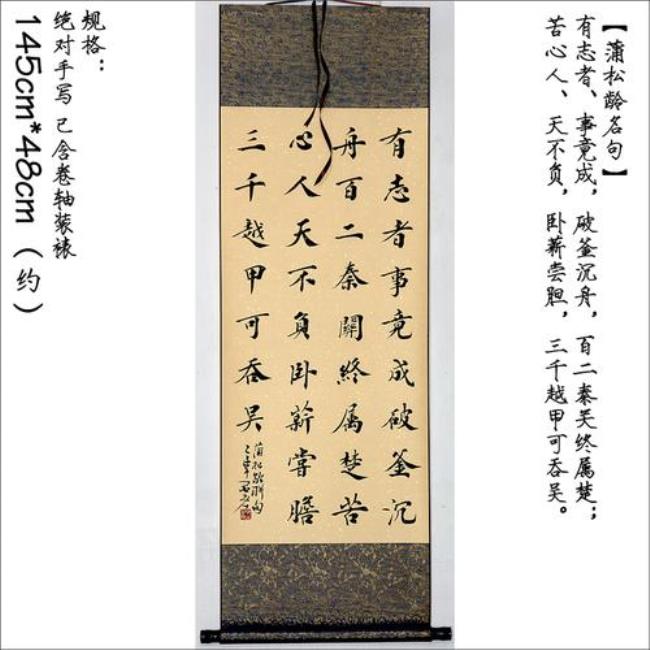 【蒲松龄名句】
有志者、事竟成，破釜沉舟，百二秦关终属楚；
苦心人、天不负，卧薪尝胆，三千越甲可吞吴。
有志者事竟成破釜沉
舟百二秦關終属楚苦
心人天不負卧薪嘗膽
三千越甲可吞吴
蒲松龄聯句
规格：
绝对手写 已含卷轴装裱
145cm*48cm（约）